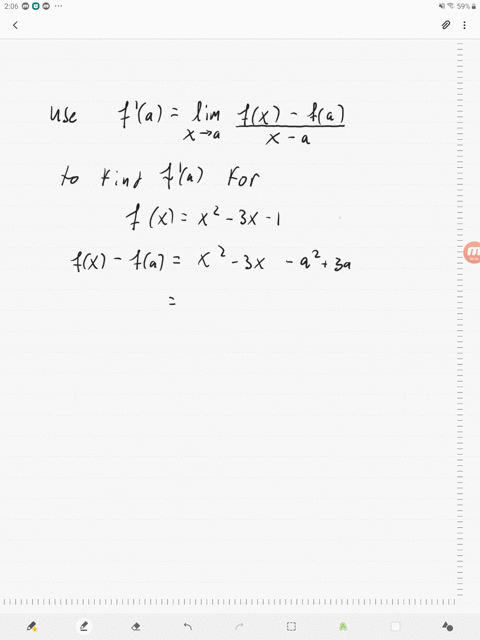 2:06 59%
Use f'(a) = lim x→a f(x) - f(a) / x - a
to find f'(a) for
f(x) = x² - 3x - 1
f(x) - f(a) = x² - 3x - a² + 3a
=